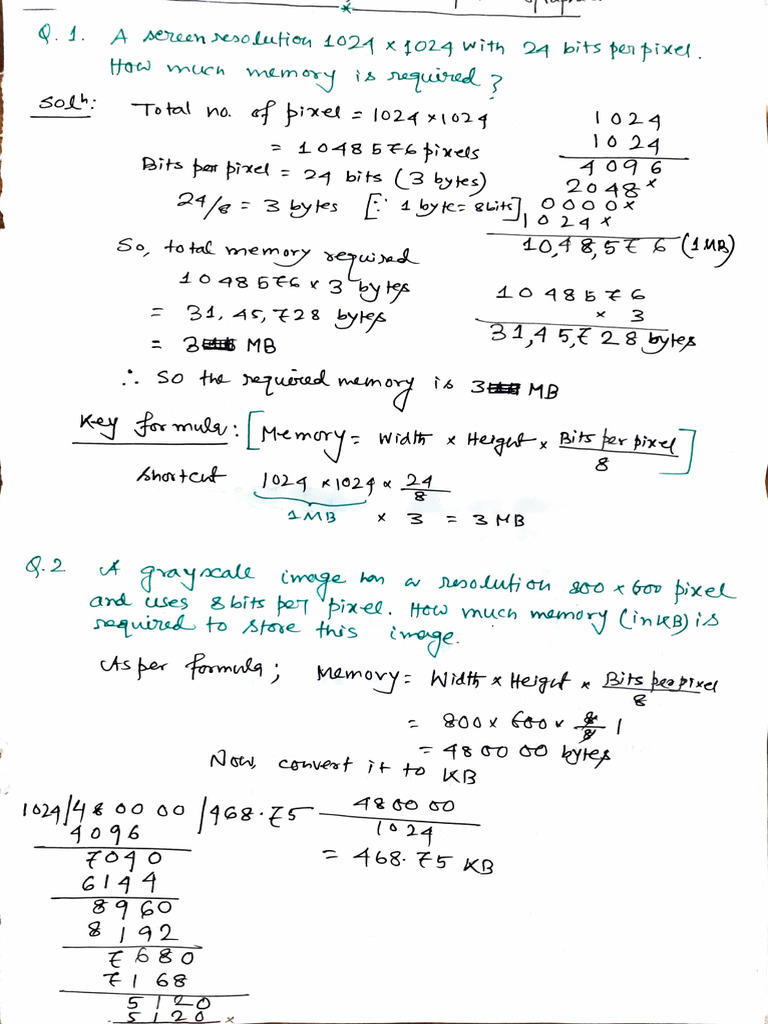 Q.1. A screen resolution 1024 × 1024 with 24 bits per pixel.
How much memory is required?
Solⁿ: Total no. of pixel = 1024 × 1024
= 1048576 pixels
Bits per pixel = 24 bits (3 bytes)
24/8 = 3 bytes [∵ 1 byte = 8 bits]
1024
1024
4096
2048×
0000×
1024×
10,48,576 (1MB)
So, total memory required
1048576 × 3 bytes
= 31,45,728 bytes
= 3 MB
1048576
× 3
31,45,728 bytes
∴ So the required memory is 3 MB
Key formula: [Memory = Width × Height × Bits per pixel / 8]
shortcut 1024 × 1024 × 24/8
1MB × 3 = 3 MB
Q.2 A grayscale image has a resolution 800 × 600 pixel
and uses 8 bits per pixel. How much memory (in KB) is
required to store this image.
As per formula; Memory = Width × Height × Bits per pixel / 8
= 800 × 600 × 8/8 1
= 480000 bytes
Now, convert it to KB
480000 / 1024
= 468.75 KB
1024/480000/468.75
4096
7040
6144
8960
8192
7680
7168
5120
5120
×